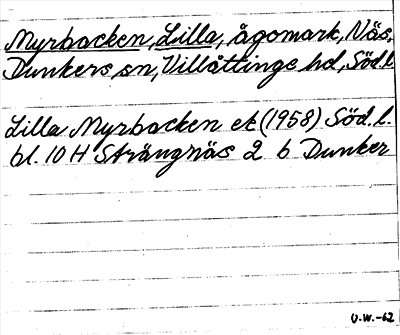 Myrbacken, Lilla, ägomark, Näs,
Dunkers sn, Villåttinge hd, Söd.l.
Lilla Myrbacken ek (1958) Söd.l.
bl. 10 H Strängnäs 2 b Dunker
O.W.-62